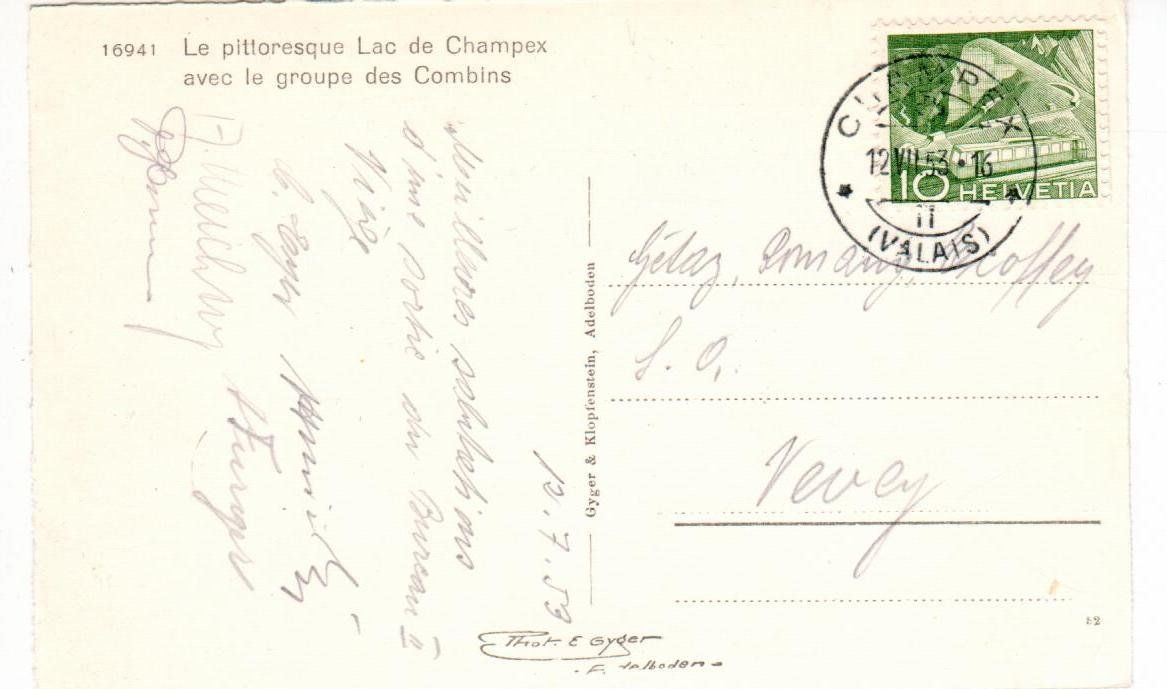 16941 Le pittoresque Lac de Champex
avec le groupe des Combins
CHAMPEX
12 VII 53 • 16
11
(VALAIS)
10 HELVETIA
12.7.53
Meilleures salutations
d'une sortie du Bureau II
Gétaz, Romang, Ecoffey
S. A.
Vevey
Gyger & Klopfenstein, Adelboden
Phot. E Gyger
Adelboden
52